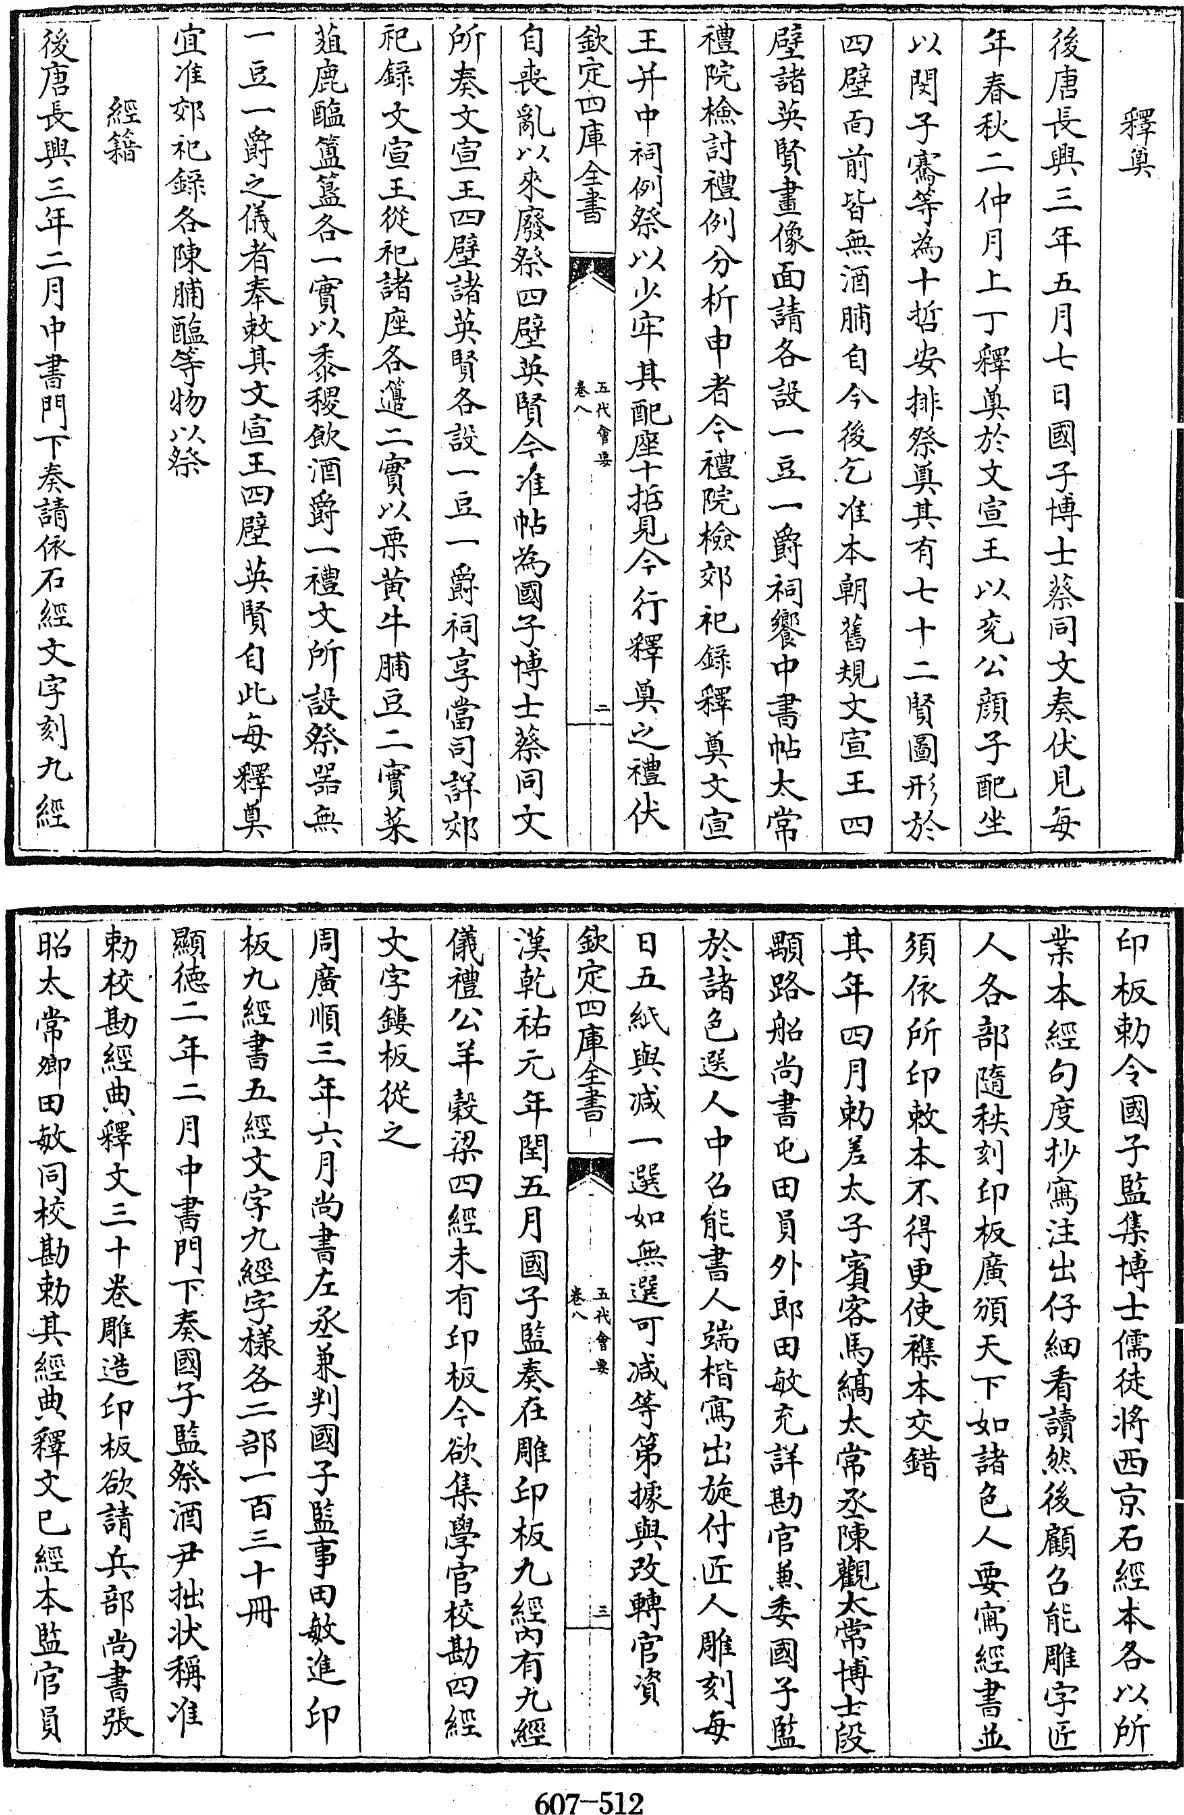 釋奠
後唐長興三年五月七日國子博士蔡同文奏伏見每
年春秋二仲月上丁釋奠於文宣王以兖公顔子配坐
以閔子騫等為十哲安排祭奠其有七十二賢圖形於
四壁面前皆無酒脯自今後乞准本朝舊規文宣王四
壁諸英賢畫像面請各設一豆一爵祠饗中書帖太常
禮院檢討禮例分析申者今禮院檢郊祀錄釋奠文宣
王并中祠例祭以少牢其配座十哲見今行釋奠之禮伏
欽定四庫全書
五代會要
卷八
二
自喪亂以來廢祭四壁英賢今准帖為國子博士蔡同文
所奏文宣王四壁諸英賢各設一豆一爵祠享當司詳郊
祀錄文宣王從祀諸座各籩二實以栗黃牛脯豆二實菜
菹鹿醢簠簋各一實以黍稷飲酒爵一禮文所設祭器無
一豆一爵之儀者奉敕其文宣王四壁英賢自此每釋奠
宜准郊祀錄各陳脯醢等物以祭
經籍
後唐長興三年二月中書門下奏請依石經文字刻九經
印板勅令國子監集博士儒徒將西京石經本各以所
業本經句度抄寫注出仔細看讀然後顧召能雕字匠
人各部隨秩刻印板廣頒天下如諸色人要寫經書並
須依所印敕本不得更使襍本交錯
其年四月勅差太子賓客馬縞太常丞陳觀太常博士段
顒路船尚書屯田員外郎田敏充詳勘官兼委國子監
於諸色選人中召能書人端楷寫出旋付匠人雕刻每
日五紙與减一選如無選可减等第據與改轉官資
欽定四庫全書
五代會要
卷八
三
漢乾祐元年閏五月國子監奏在雕印板九經內有九經
儀禮公羊穀梁四經未有印板今欲集學官校勘四經
文字鏤板從之
周廣順三年六月尚書左丞兼判國子監事田敏進印
板九經書五經文字九經字樣各二部一百三十冊
顯德二年二月中書門下奏國子監祭酒尹拙状稱准
勅校勘經典釋文三十卷雕造印板欲請兵部尚書張
昭太常卿田敏同校勘勅其經典釋文已經本監官員
607-512